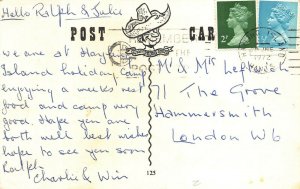 Hello Ralph & Julie
POST CAR
we are at Hay
Island holiday Camp
enjoying a weeks rest
good and camp very
good Hope you are
both well best wishes
hope to see you soon
Ralph
Charlie & Win
Mr & Mrs Leftwich
71 The Grove
Hammersmith
London W6
125